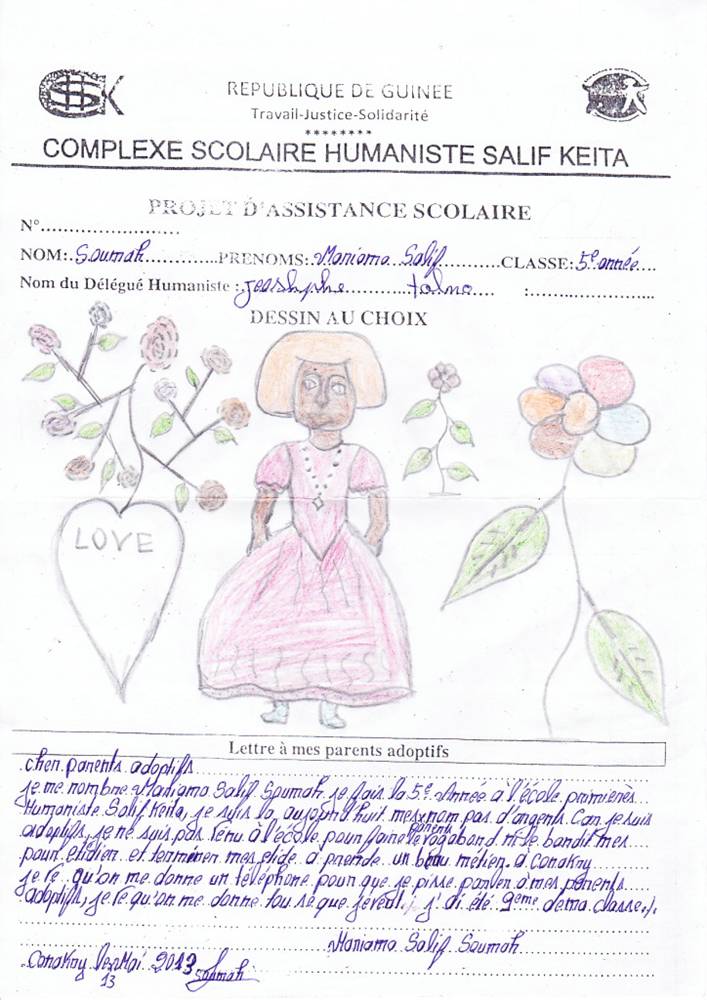 REPUBLIQUE DE GUINEE
Travail-Justice-Solidarité
********
COMPLEXE SCOLAIRE HUMANISTE SALIF KEITA
PROJET D'ASSISTANCE SCOLAIRE
N°........................
NOM:.Soumah............PRENOMS:.Maniama Salif..........CLASSE:5e année....
Nom du Délégué Humaniste : :........................
DESSIN AU CHOIX
LOVE
Lettre à mes parents adoptifs
chen parents adoptifs
je me nombre Maniama Salif Soumah je fais la 5e Année à l'école primières
Humaniste Salif Keita, je suis la aujourd huit mes nom pas d'angents Can je suis
adoptifs, je ne suis pas venu à l'école pour faine le vagaband ni le bandit mes parents
poun étidien et terminen mes etide à prende un beau metien à Conakny
je re qu'on me donne un téléphone poun que je pisse panlen à mes panents
adoptifs, je re qu'on me donne tou se que je j'ai été 9eme dema classe
Maniama Salif Soumah
Conakny le Mai 2013 Soumah
13